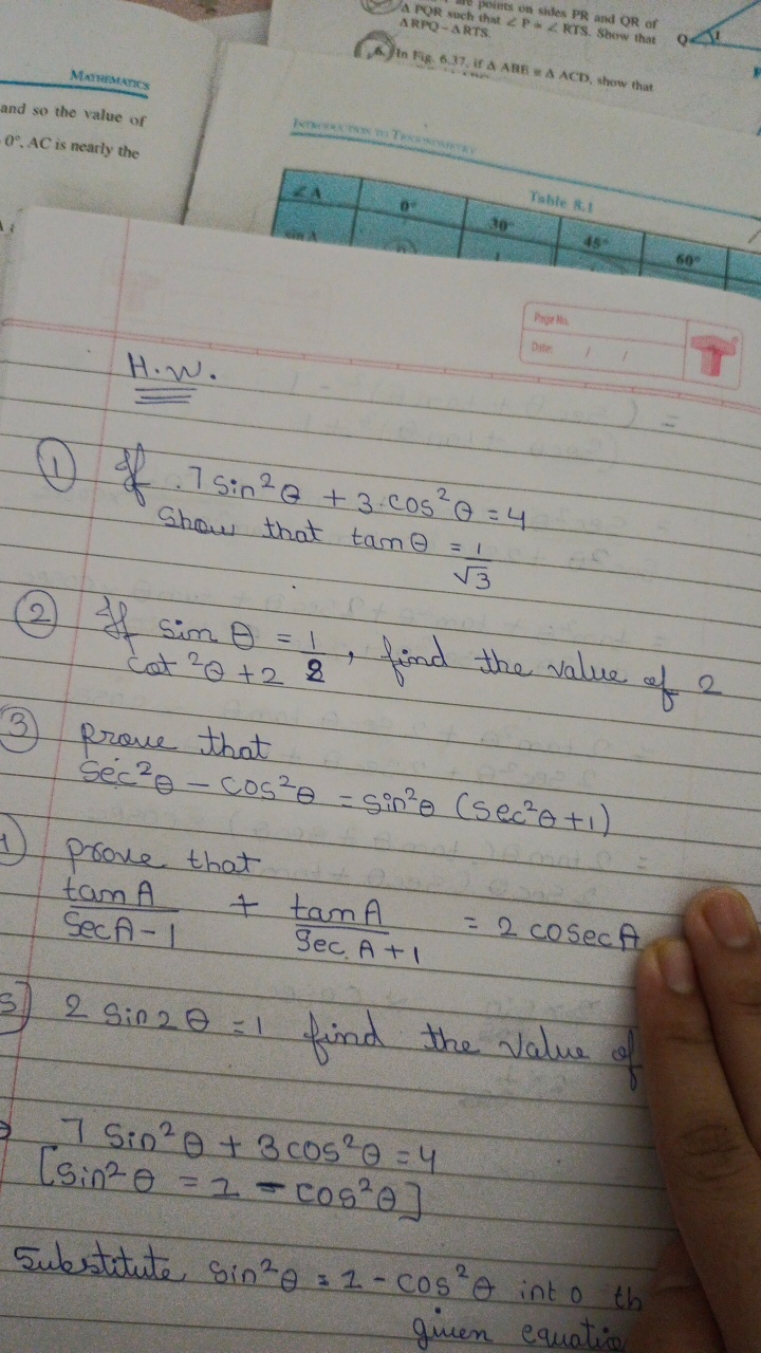 are points on sides PR and QR of
Δ PQR such that ∠ P = ∠ RTS. Show that
Δ RPQ ~ Δ RTS.
Q
In Fig. 6.37, if Δ ABE ≅ Δ ACD, show that
MATHEMATICS
and so the value of
0°. AC is nearly the
INTRODUCTION TO TRIGONOMETRY
Table 8.1
∠A 0° 30° 45° 60°
sin A
Page No.
Date: / /
H.W.
① If 7 sin²θ + 3 cos²θ = 4
Show that tanθ = 1/√3
② If sin θ = 1/2, find the value of 2
cot²θ + 2
③ prove that
Sec²θ – cos²θ = sin²θ (sec²θ + 1)
prove that
tan A / Sec A – 1 + tan A / Sec. A + 1 = 2 cosec A
5] 2 sin 2θ = 1 find the value of
7 sin²θ + 3 cos²θ = 4
[sin²θ = 1 – cos²θ]
Substitute sin²θ = 1 – cos²θ into th
given equatio